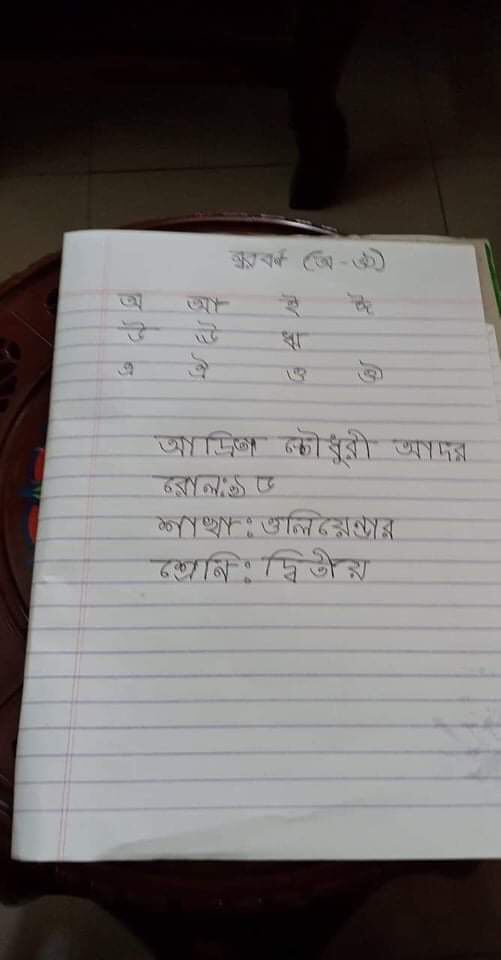 স্বরবর্ণ (অ - ঔ)
অ আ ই ঈ
উ ঊ ঋ
এ ঐ ও ঔ
আদ্রিতা চৌধুরী আদর
রোল: ১৮
শাখা: ওলিয়েন্ডার
শ্রেনি: দ্বিতীয়